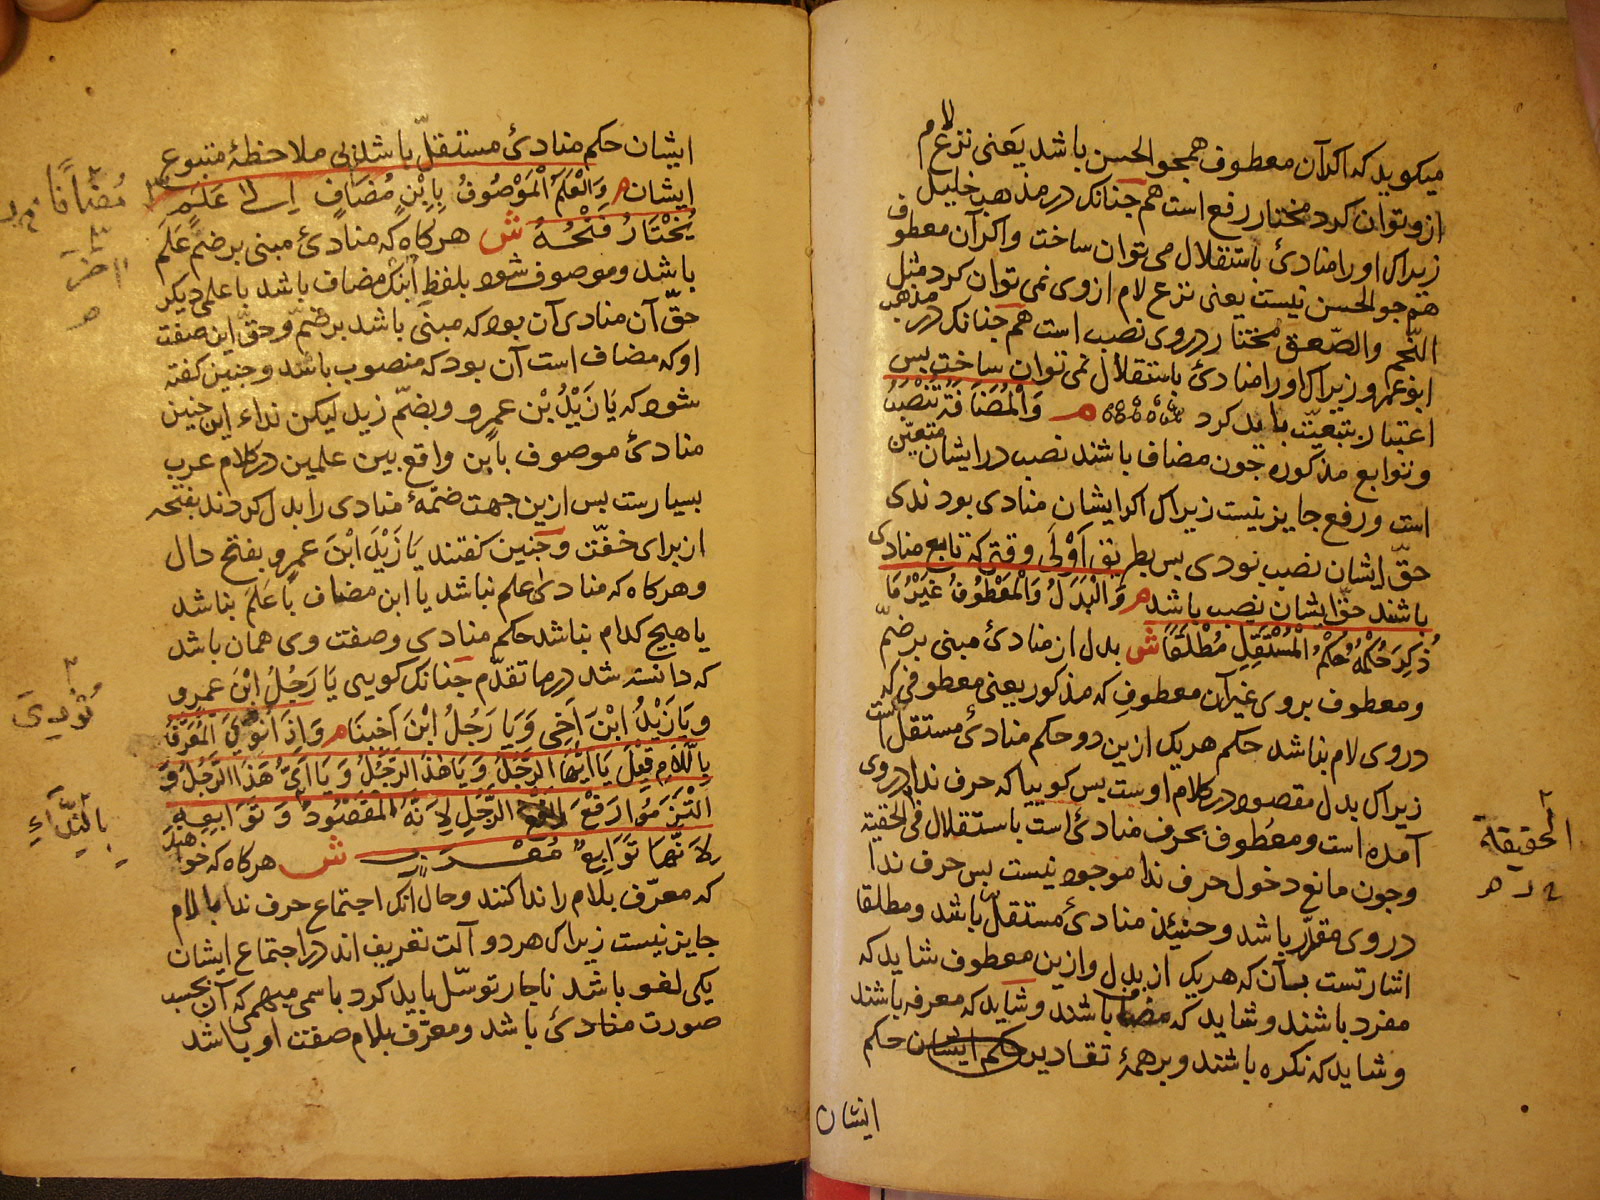 میکوید که اکر آن معطوف همجو الحسن باشد یعنی نزع لام
ازو توان کرد مختار رفع است همجنانک در مذهب خلیل
زیراک او را منادیٔ باستقلال می توان ساخت واکر آن معطوف
همجو الحسن نیست یعنی نزع لام ازوی نمی توان کرد مثل
النّجم والصّعق مختار دروی نصب است همجنانک در مذهب
ابو عمرو زیراک او را منادیٔ باستقلال نمی توان ساخت بس
اعتبار بتبعیّت باید کرد م وَالْمُضَافَةُ تُنْصَبُ
وتوابع مذکوره جون مضاف باشند نصب در ایشان متعیّن
است ورفع جایز نیست زیراک اکر ایشان منادی بودندی
حقّ ایشان نصب بودی بس بطریق اَوْلَی وقتی که تابع منادی
باشند حقّ ایشان نصب باشد م وَالْبَدَلُ وَالْمَعْطُوفُ غَیْرُ مَا
ذُکِرَ حُکْمُهُ حُکْمُ الْمُسْتَقِلِّ مُطْلَقًا ش بدل از منادیٔ مبنی برضمّ
ومعطوف بروی غیر آن معطوف که مذکور یعنی معطوفی که
دروی لام نباشد حکم هریک ازین دو حکم منادیٔ مستقلّ است
زیراک بدل مقصود در کلام اوست بس کوییا که حرف ندا دروی
آمده است ومعطوف بحرف منادیٔ است باستقلال فی الحقیقة
وجون مانع دخول حرف ندا موجود نیست بس حرف ندا
دروی مقدّر باشد وحنیئذ منادیٔ مستقلّ باشد ومطلقا
اشارتست بسآن که هریک از بدل وازین معطوف شاید که
مفرد باشند وشاید که مضاف باشند وشاید که معرفه باشند
وشاید که نکره باشند وبرهمهٔ تقادیر حکم ایشان حکم
ایشان
الحقیقة
ایشان حکم منادیٔ مستقلّ باشد بی ملاحظهٔ متبوع
ایشان م وَالْعَلَمُ الْمَوْصُوفُ بِابْنٍ مُضَافٍ اِلَی عَلَمٍ
یُخْتَارُ فَتْحُهُ ش هرکاه که منادیٔ مبنی برضمّ عَلَم
باشد وموصوف شود بلفظ ابن که مضاف باشد با علمی دیکر
حقّ آن منادی آن بود که مبنی باشد برضمّ وحقّ این صفت
او که مضاف است آن بود که منصوب باشد وجنین کفته
شود که یَا زَیْدُ بْن عمرو وبضمّ زید لیکن نداء این جنین
منادیٔ موصوف بابن واقع بین علمین در کلام عرب
بسیارست بس ازین جهت ضمّهٔ منادی را بدل کردند بفتحه
از برای خفّت وجنین کفتند یَا زَیْدَ ابْنَ عمرو بفتح دال
وهرکاه که منادیٰ علم نباشد یا ابن مضاف با عَلَم نباشد
یا هیج کدام نباشد حکم منادی وصفت وی همان باشد
که دانسته شد درما تقدّم جنانک کویی یَا رَجُلُ ابْنَ عمرو
وَیَا زَیْدُ ابْنَ اَخِی وَیَا رَجُلُ ابْنَ اَخِینَا م وَاِذَا نُودِیَ الْمُعَرَّفُ
بِاللَّامِ قِیْلَ یَا اَیُّهَا الرَّجُلُ وَیَا هٰذَا الرَّجُلُ وَیَا اَیُّهٰذَا الرَّجُلُ وَ
الْتَزَمُوا رَفْعَ الرَّجُلِ لِاَنَّهُ الْمَقْصُودُ وَتَوَابِعِهِ
لِاَنَّهَا تَوَابِعُ مُعْرَبٍ ش هرکاه که خواهند
که معرّف بلام را ندا کنند وحال آنک اجتماع حرف ندا با لام
جایز نیست زیراک هردو آلت تعریف اند در اجتماع ایشان
یکی لغو باشد ناجار توسّل باید کرد باسمی مبهمی که آن بحسب
صورت منادیٔ باشد ومعرّف بلام صفت او باشد
مُضَافًا
نُودِیَ
بِالنِّدَاءِ